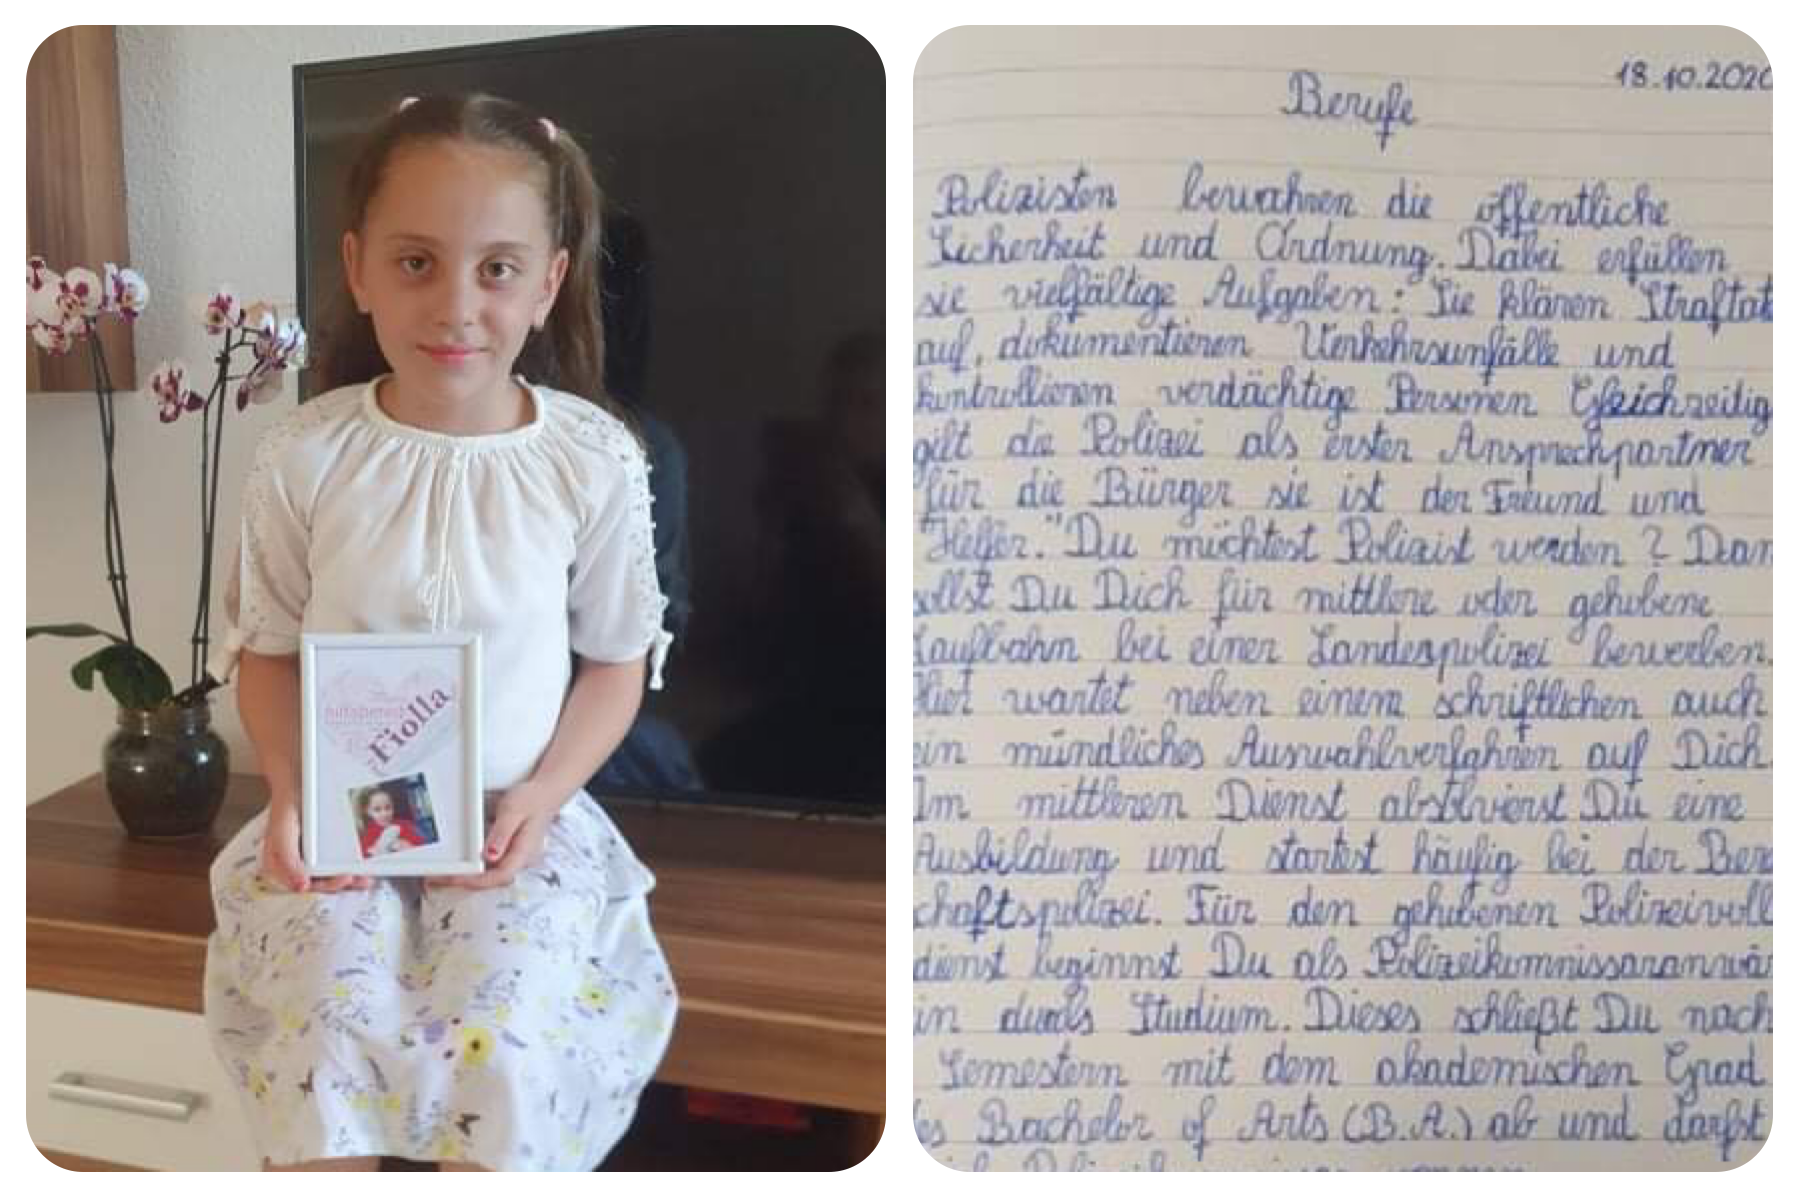 hilfsbereit
Fiolla
18.10.2020
Berufe
Polizisten bewahren die öffentliche
Sicherheit und Ordnung. Dabei erfüllen
sie vielfältige Aufgaben: Sie klären Straftat
auf, dokumentieren Verkehrsunfälle und
kontrollieren verdächtige Personen Gleichzeitig
gilt die Polizei als erster Ansprechpartner
für die Bürger sie ist der Freund und
"Helfer." Du möchtest Polizist werden? Dan
sollst Du Dich für mittlere oder gehobene
Laufbahn bei einer Landespolizei bewerben.
Hier wartet neben einem schriftlichen auch
ein mündliches Auswahlverfahren auf Dich.
Im mittleren Dienst absolvierst Du eine
Ausbildung und startest häufig bei der Bere
chaftspolizei. Für den gehobenen Polizeivoll
dienst beginnst Du als Polizeikomnissaranwär
in Studium. Dieses schließt Du nach
Semestern mit dem akademischen Grad
es Bachelor of Arts (B.A.) ab und darfst